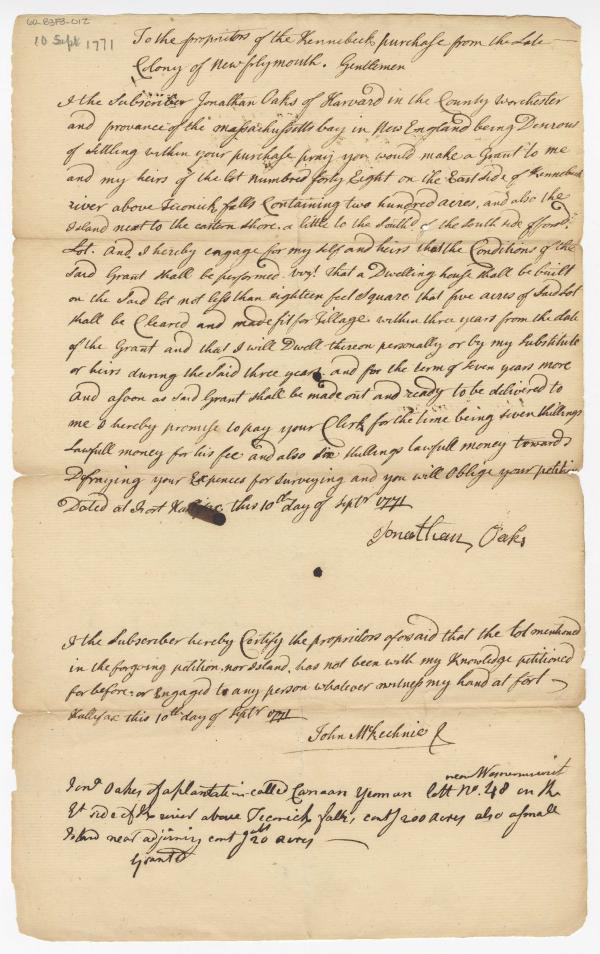 60-83F3-012
10 Sept 1771
To the proprietors of the Kennebeck purchase from the Late
Colony of New Plymouth. Gentlemen
I the Subscriber Jonathan Oaks of Harvard in the County Worchester
and provance of the massachussetts bay in New England being Desirous
of settling within your purchase pray you would make a Grant to me
and my heirs of the lot numbred forty Eight on the East side of Kennebeck
river above Teconick falls Containing two hundred acres, and also the
Island next to the eastern shore, a little to the South of the South side of
Lot. And, I hereby engage for my self and heirs that the Conditions of the
said Grant shall be performed. That a Dwelling house shall be built
on the said lot not less than eighteen feet Square that five acres of said lot
shall be Cleared and made fit for Tillage within three years from the date
of the Grant and that I will Dwell thereon personally or by my substitute
or heirs during the said three years and for the term of seven years more
And asoon as said Grant shall be made out and ready to be delivered to
me I hereby promise to pay your Clerk for the time being seven shillings
Lawfull money for his fee and also six shillings lawfull money towards
Defraying your Expences for surveying and you will Oblige your
Dated at Fort this 10th day of Septr 1771
Jonathan Oaks
I the Subscriber hereby Certify the proprietors that the Lot mentioned
in the petition, nor Island, has not been with my Knowledge petitioned
for before or Engaged to any person whatever witness my hand at fort
Hallifax this 10th day of Septr 1771
John McKechnie
near
Jont Oakes of a plantati called Canaan Yeoman lott No. 48 on the
Et side of the river above Teconick falls, contg 200 acres also a small
Island near adjoining contg 20 acres
Grantd